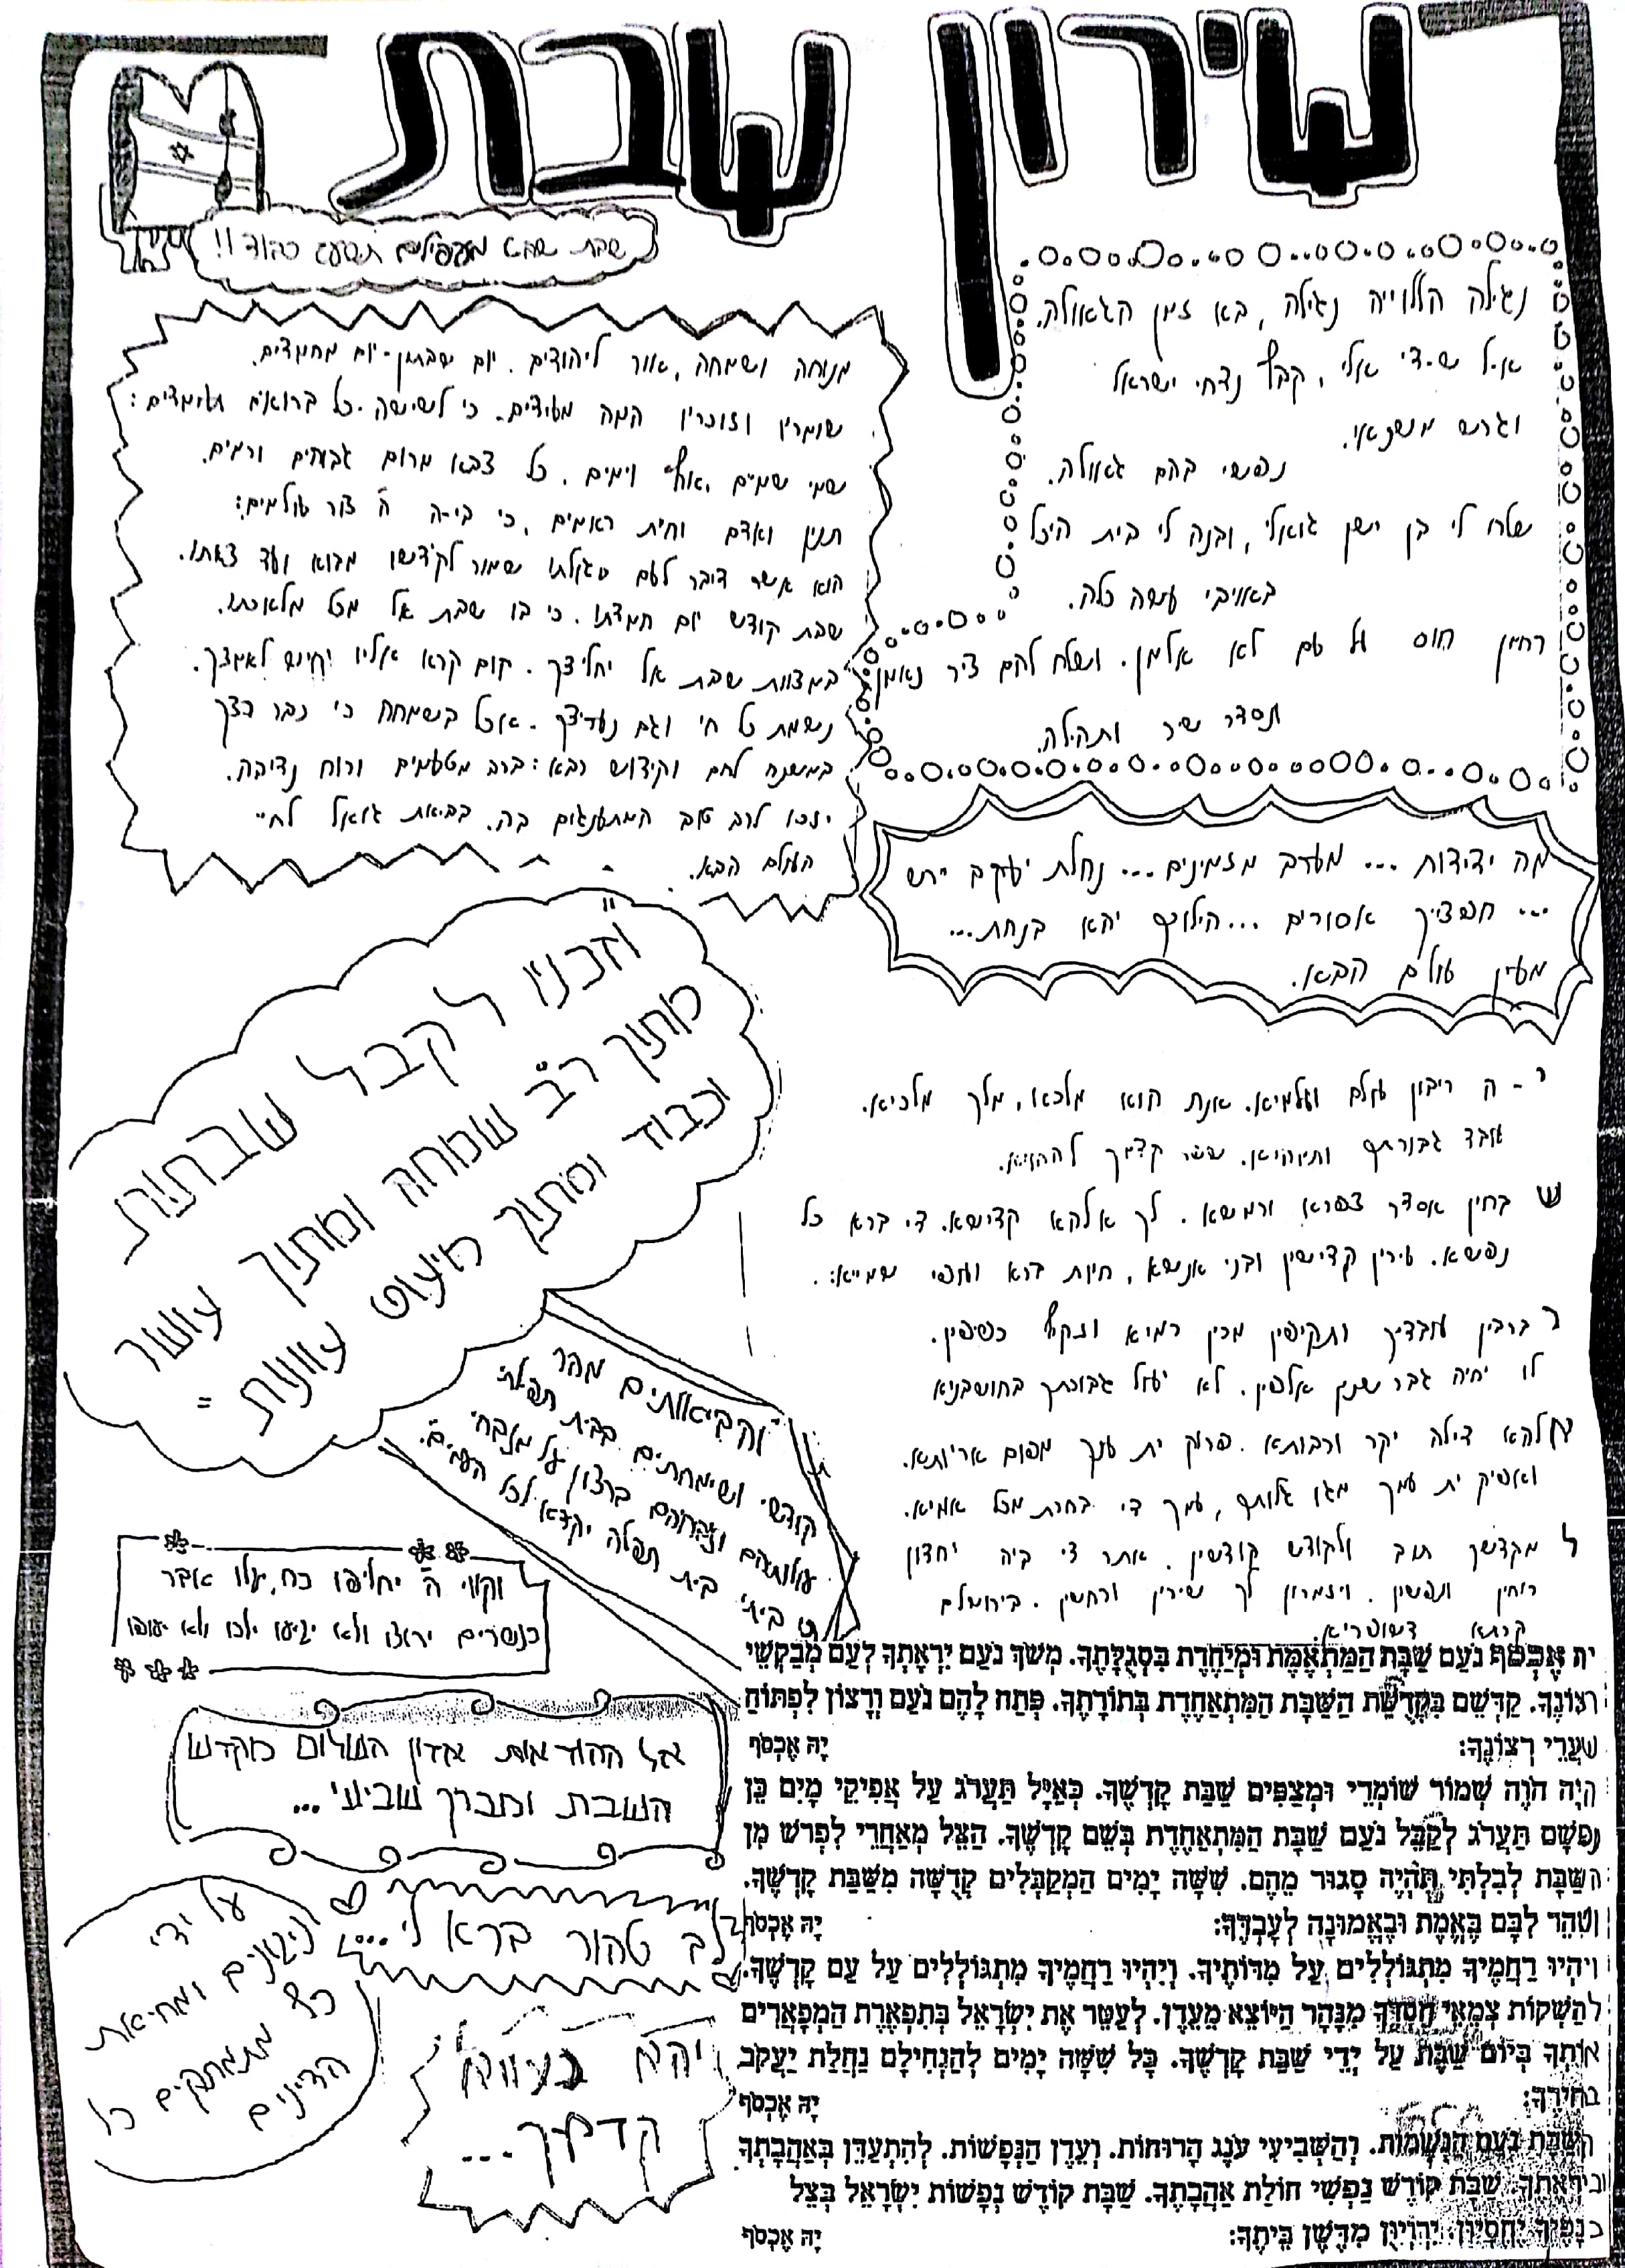 שירון שבת
שבת שבא מעפילים תסעג כבוד!!
נגילה הללוייה נגילה, בא זמן הגאולה.
א-ל ש-די אלי, קבץ נדחי ישראל
וגרש מושנאי.
נפשי בהם גאולה.
שלח לי בן ישי גואלי, ובנה לי בית היכל
באוייבי עשה כלה.
רחמן חוס על עם לא אלמן. ושלח להם ציר נאמן
ונסדר שיר ותהילה.
מנוחה ושמחה, אור ליהודים. יום שבתון-יום מחמדים.
שומריו וזוכריו המה מעידים. כי לשישה כל ברואים ועומדים:
שמי שמים, ארץ וימים. כל צבא מרום גבוהים ורמים.
תנין ואדם וחית ראמים, כי בי-ה ה' צור עולמים:
הוא אשר דיבר לעם סגולתו שמור לקדשו מבוא ועד צאתו.
שבת קודש יום חמדתו. כי בו שבת אל מכל מלאכתו.
במצוות שבת אל יחליצך. קום קרא אליו יחיש לאמצך.
נשמת כל חי וגם נעריצך. אכל בשמחה כי כבר רצך
במשנה לחם וקידוש רבא: ברב מטעמים ורוח נדיבה.
יזכו לרב טוב המתענגים בה. בביאת גואל לחיי
העולם הבא.
מה ידידות ... מערב מזמינים ... נחלת יעקב יירש
... חפציך אסורים ... הילוכך יהא בנחת...
מעין עולם הבא.
"וזכנו לקבל שבתות
מתוך רב שמחה ומתוך עושר
וכבוד ומתוך מיעוט עוונות =
י-ה ריבון עולם ועלמיא. אנת הוא מלכא, מלך מלכיא.
עובד גבורתך ותימהיא. שפר קדמך להחויא.
ש בחין אסדר צפרא ורמשא. לך אלהא קדישא. די ברא כל
נפשא. עירין קדישין ובני אנשא, חיות ברא ועופי שמייא:
ר ברבין עובדיך ותקיפין מכיך רמיא וזקיף כפיפין.
לו יחיה גבר שנין אלפין. לא יעול גבורתך בחושבניא
אלהא דילה יקר ורבותא. פרוק ית ענך מפום אריותא.
ואפיק ית עמך מגו גלותך, עמך די בחרת מכל אמיא.
ל מקדשך תוב ולקודש קודשין. אתר די ביה יחדון
רוחין ונפשין. ויזמרון לך שירין ורחשין. בירושלם
קרתא דשופריא.
"והביאותים מהר
קודשי ושימחתים בבית תפילתי
עולותיהם וזבחיהם ברצון על מזבחי
כי ביתי בית תפלה יקרא לכל העמים".
וקווי ה' יחליפו כח, יעלו אבר
כנשרים ירוצו ולא ייגעו ילכו ולא יעופו
אל ההודאות אדון השלום מקדש
השבת ומברך שביעי...
לב טהור ברא לי...
על ידי
ניגונים ומחיאת
כף מתמתקים כל
הדינים
יהא רעווא
קדמך...
יה אֶכְסֹף נֹעַם שַׁבָּת הַמַּתְאֶמֶת וּמְיַחֶדֶת בִּסְגֻלָּתֶךָ. מְשֹׁךְ נֹעַם יִרְאָתְךָ לְעַם מְבַקְשֵׁי
רצוֹנֶךָ. קַדְּשֵׁם בִּקְדֻשַּׁת הַשַּׁבָּת הַמִּתְאַחֶדֶת בְּתוֹרָתֶךָ. פְּתַח לָהֶם נֹעַם וְרָצוֹן לִפְתּוֹחַ
שַׁעֲרֵי רְצוֹנֶךָ: יָהּ אֶכְסֹף
הָיָה הֹוֶה שְׁמוֹר שׁוֹמְרֵי וּמְצַפִּים שַׁבַּת קָדְשֶׁךָ. כְּאַיָּל תַּעֲרֹג עַל אֲפִיקֵי מָיִם כֵּן
נַפְשָׁם תַּעֲרֹג לְקַבֵּל נֹעַם שַׁבָּת הַמִּתְאַחֶדֶת בְּשֵׁם קָדְשֶׁךָ. הַצֵּל מְאַחֲרֵי לִפְרֹשׁ מִן
הַשַּׁבָּת לְבִלְתִּי תִּהְיֶה סָגוּר מֵהֶם. שִׁשָּׁה יָמִים הַמְקַבְּלִים קְדֻשָּׁה מִשַּׁבַּת קָדְשֶׁךָ.
וְטַהֵר לִבָּם בֶּאֱמֶת וּבֶאֱמוּנָה לְעָבְדֶּךָ: יָהּ אֶכְסֹף
ויִהְיוּ רַחֲמֶיךָ מִתְגּוֹלְלִים עַל מִדּוֹתֶיךָ. וְיִהְיוּ רַחֲמֶיךָ מִתְגּוֹלְלִים עַל עַם קָדְשֶׁךָ.
להַשְׁקוֹת צְמֵאֵי חַסְדֶּךָ מִנָּהָר הַיּוֹצֵא מֵעֵדֶן. לְעַטֵּר אֶת יִשְׂרָאֵל בְּתִפְאֶרֶת הַמְפָאֲרִים
אוֹתְךָ בְּיוֹם שַׁבָּת עַל יְדֵי שַׁבַּת קָדְשֶׁךָ. כָּל שִׁשָּׁה יָמִים לְהַנְחִילָם נַחֲלַת יַעֲקֹב
בחִירֶךָ: יָהּ אֶכְסֹף
הַשַּׁבָּת נֹעַם הַנְּשָׁמוֹת. וְהַשְּׁבִיעִי עֹנֶג הָרוּחוֹת. וְעֵדֶן הַנְּפָשׁוֹת. לְהִתְעַדֵּן בְּאַהֲבָתְךָ
וביִרְאָתֶךָ. שַׁבָּת קוֹדֶשׁ נַפְשִׁי חוֹלַת אַהֲבָתֶךָ. שַׁבָּת קוֹדֶשׁ נְפָשׁוֹת יִשְׂרָאֵל בְּצֵל
כנָפֶיךָ יֶחֱסָיוּן. יִרְוְיֻן מִדֶּשֶׁן בֵּיתֶךָ: יָהּ אֶכְסֹף